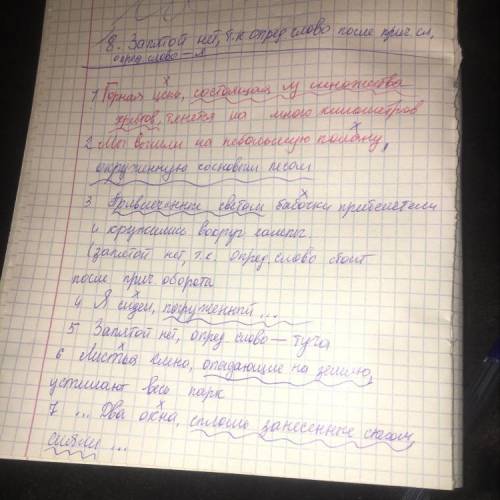 8. Запятой нет, т.к опред слово после прич. об,
опред слово — Я
1 Горная цепь, состоящая из множества
хребтов, тянется на много километров
2. Мы вышли на небольшую поляну,
окруженную сосновым лесом
3. Привлеченные светом бабочки прилетели
и кружились вокруг лампы.
(запятой нет, т.к. опред. слово стоит
после прич. оборота
4 Я сидел, погруженный ...
5 Запятой нет, опред слово — туча
6 Листья клена, опадающие на землю,
устилают весь парк
7 ... Два окна, сплошь занесенные снегом,
сияли ...